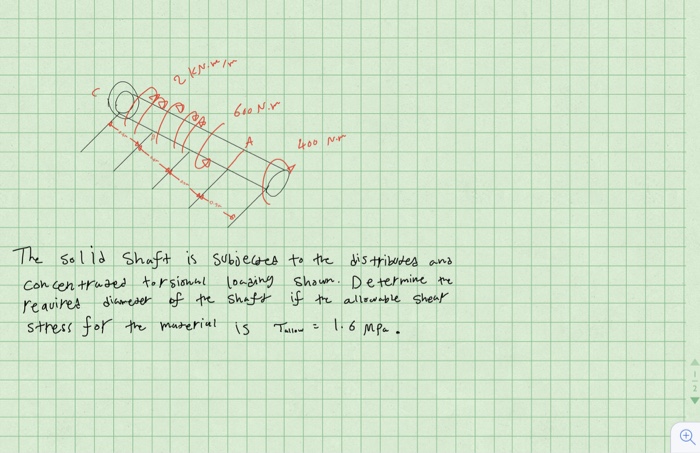 2 kN.m/m
C
600 N.m
A
400 N.m
The solid shaft is subjected to the distributed and
concentrated torsional loading shown. Determine the
required diameter of the shaft if the allowable shear
stress for the material is τallow = 1.6 MPa.
1
2